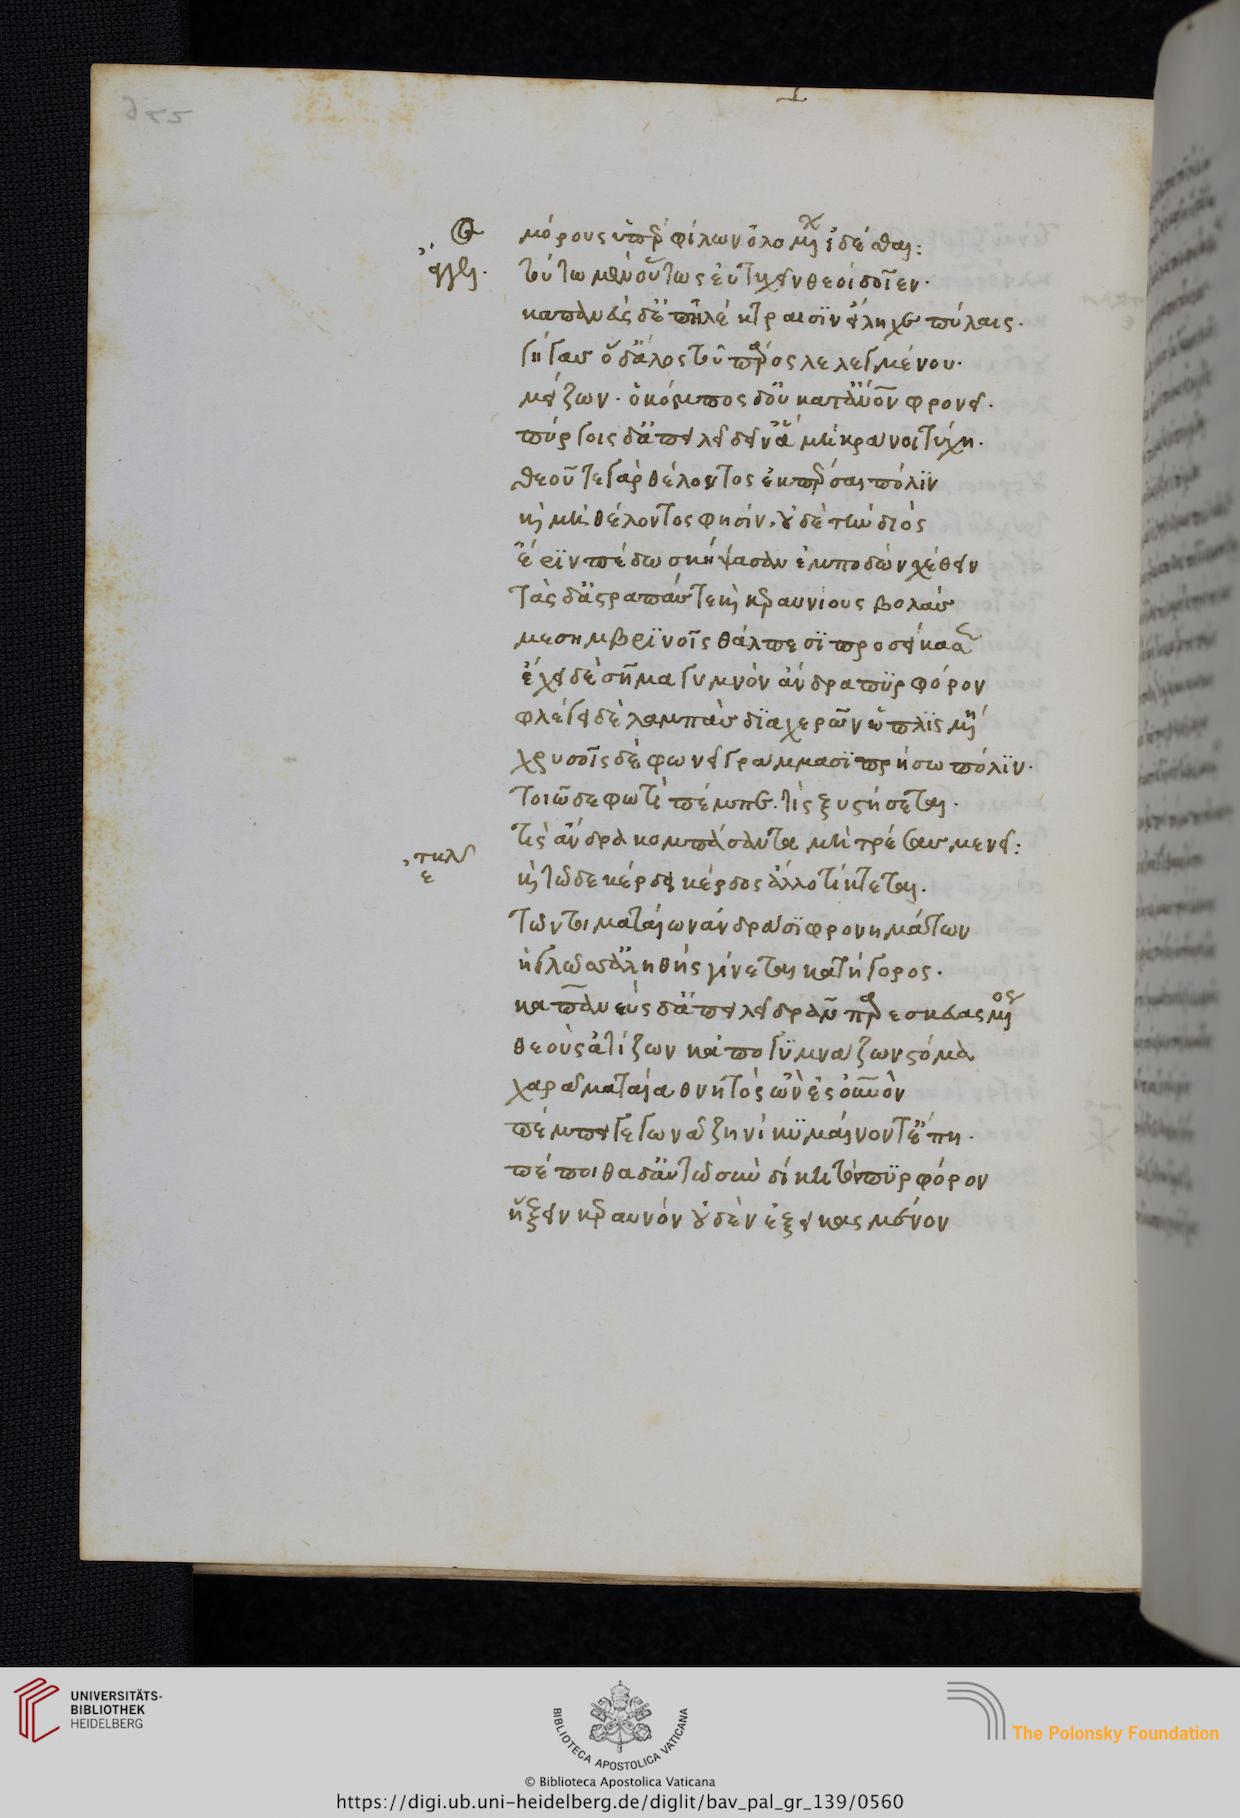 μόρους ὑπὲρ φίλων ὀλομένων ἰδέσθαι:
ἄγγε. τούτω μὲν οὕτως εὐτυχεῖν θεοὶ δοῖεν.
καπανεὺς δ' ἐπ' ἠλέκτραισιν εἴληχε πύλαις.
γίγας ὅδ' ἄλλος τοῦ πάρος λελεγμένου.
μείζων. ὁ κόμπος δ' οὐ κατ' ἄνθρωπον φρονεῖ.
πύργοις δ' ἀπειλεῖ δείν' ἃ μὴ κραίνοι τύχη.
θεοῦ τε γὰρ θέλοντος ἐκπέρσαι πόλιν
καὶ μὴ θέλοντος φησίν. οὐδὲ τὴν διὸς
ἔριν πέδω σκήψασαν ἐμποδὼν σχέθειν
τὰς δ' ἀστραπάς τε καὶ κεραυνίους βολὰς
μεσημβρινοῖς θάλπεσι προσείκασεν
ἔχει δὲ σῆμα γυμνὸν ἄνδρα πυρφόρον
φλέγει δὲ λαμπὰς διὰ χερῶν ὡπλισμένη
χρυσοῖς δὲ φωνεῖ γράμμασι πρήσω πόλιν.
τοιῶδε φωτὶ πέμπε. τίς ξυστήσεται.
τίς ἄνδρα κομπάσαντα μὴ τρέσας μενεῖ:
ἐτεκλ
καὶ τῶδε κέρδει κέρδος ἄλλο τίκτεται.
τῶν τοι ματαίων ἀνδράσι φρονημάτων
ἡ γλῶσσ' ἀληθὴς γίνεται κατήγορος.
καπανεὺς δ' ἀπειλεῖ δρᾶν παρεσκευασμένος
θεοὺς ἀτίζων κἀπογυμνάζων στόμα
χαρᾶ ματαία θνητὸς ὢν ἐς οὐρανὸν
πέμπει γεγωνὰ ζηνὶ κυμαίνοντ' ἔπη.
πέποιθα δ' αὐτῶ σὺν δίκη τὸν πυρφόρον
ἥξειν κεραυνόν οὐδὲν ἐξεικασμένον
UNIVERSITÄTS-
BIBLIOTHEK
HEIDELBERG
BIBLIOTECA APOSTOLICA VATICANA
The Polonsky Foundation
© Biblioteca Apostolica Vaticana
https://digi.ub.uni-heidelberg.de/diglit/bav_pal_gr_139/0560